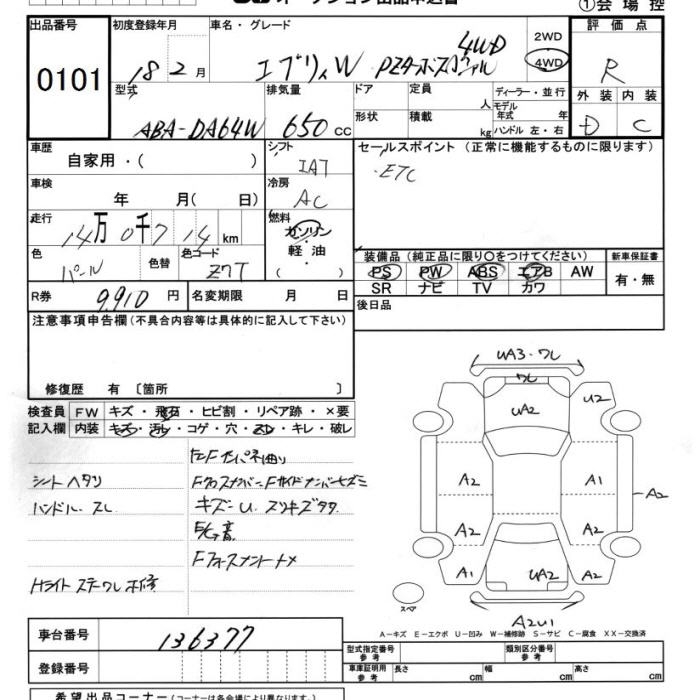 ①会 場 控
出品番号 初度登録年月 車名・グレード 2WD 評 価 点
0101 18 年 2 月 エブリィW PZターボスペシャル 4WD 4WD R
型式 排気量 ドア 定員 人 ディーラー・並行 外 装 内 装
モデル 年式 年
ABA-DA64W 650 cc 形状 積載 kg ハンドル 左・右 D C
車歴 自家用・( ) シフト IAT セールスポイント (正常に機能するものに限ります)
・ETC
車検 年 月( 日) 冷房 AC
走行 14 万 0 千 7 14 km 燃料 ガソリン
軽・油
( )
色 パール 色替 色コード Z7T
装備品 (純正品に限り○をつけてください) 新車保証書
PS PW ABS エアB AW 有・無
SR ナビ TV カワ
R券 9,910 円 名変期限 月 日 後日品
注意事項申告欄(不具合内容等は具体的に記入して下さい)
修復歴 有 〔箇所 〕
検査員 FW キズ・飛石・ヒビ割・リペア跡・×要
記入欄 内装 キズ・汚レ・コゲ・穴・スレ・キレ・破レ
シートヘタリ
ハンドル スレ
キズー U、スリキズタタ
Hライト ステー ワレ 補修
UA3・ワレ
ワレ
UA2
U2
A2
A1
A2
A2
A2
A1
UA2
A2
A2U1
スペア
A-キズ E-エクボ U-凹み W-補修跡 S-サビ C-腐食 XX-交換済
車台番号 136377
登録番号
型式指定番号 参 考 類別区分番号 参 考
車庫証明用 参 考 長さ cm 幅 cm 高さ cm
希望出品コーナー (コーナーは各会場により異なります)